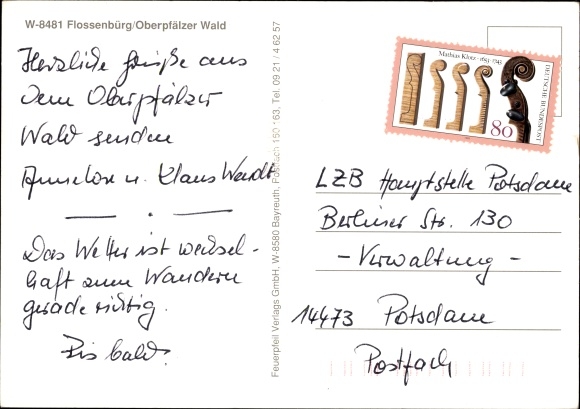 W-8481 Flossenbürg/Oberpfälzer Wald
Herzliche Grüße aus
dem Oberpfälzer
Wald senden
Annelore u. Klaus Wendt
Das Wetter ist wechsel-
haft zum Wandern
gerade richtig.
Bis bald!
Feuerpfeil Verlags GmbH, W-8580 Bayreuth, Postfach 150163, Tel. 09 21 / 4 62 57
Mathias Klotz · 1653-1743
80
DEUTSCHE BUNDESPOST
LZB Hauptstelle Potsdam
Berliner Str. 130
- Verwaltung -
14473 Potsdam
Postfach